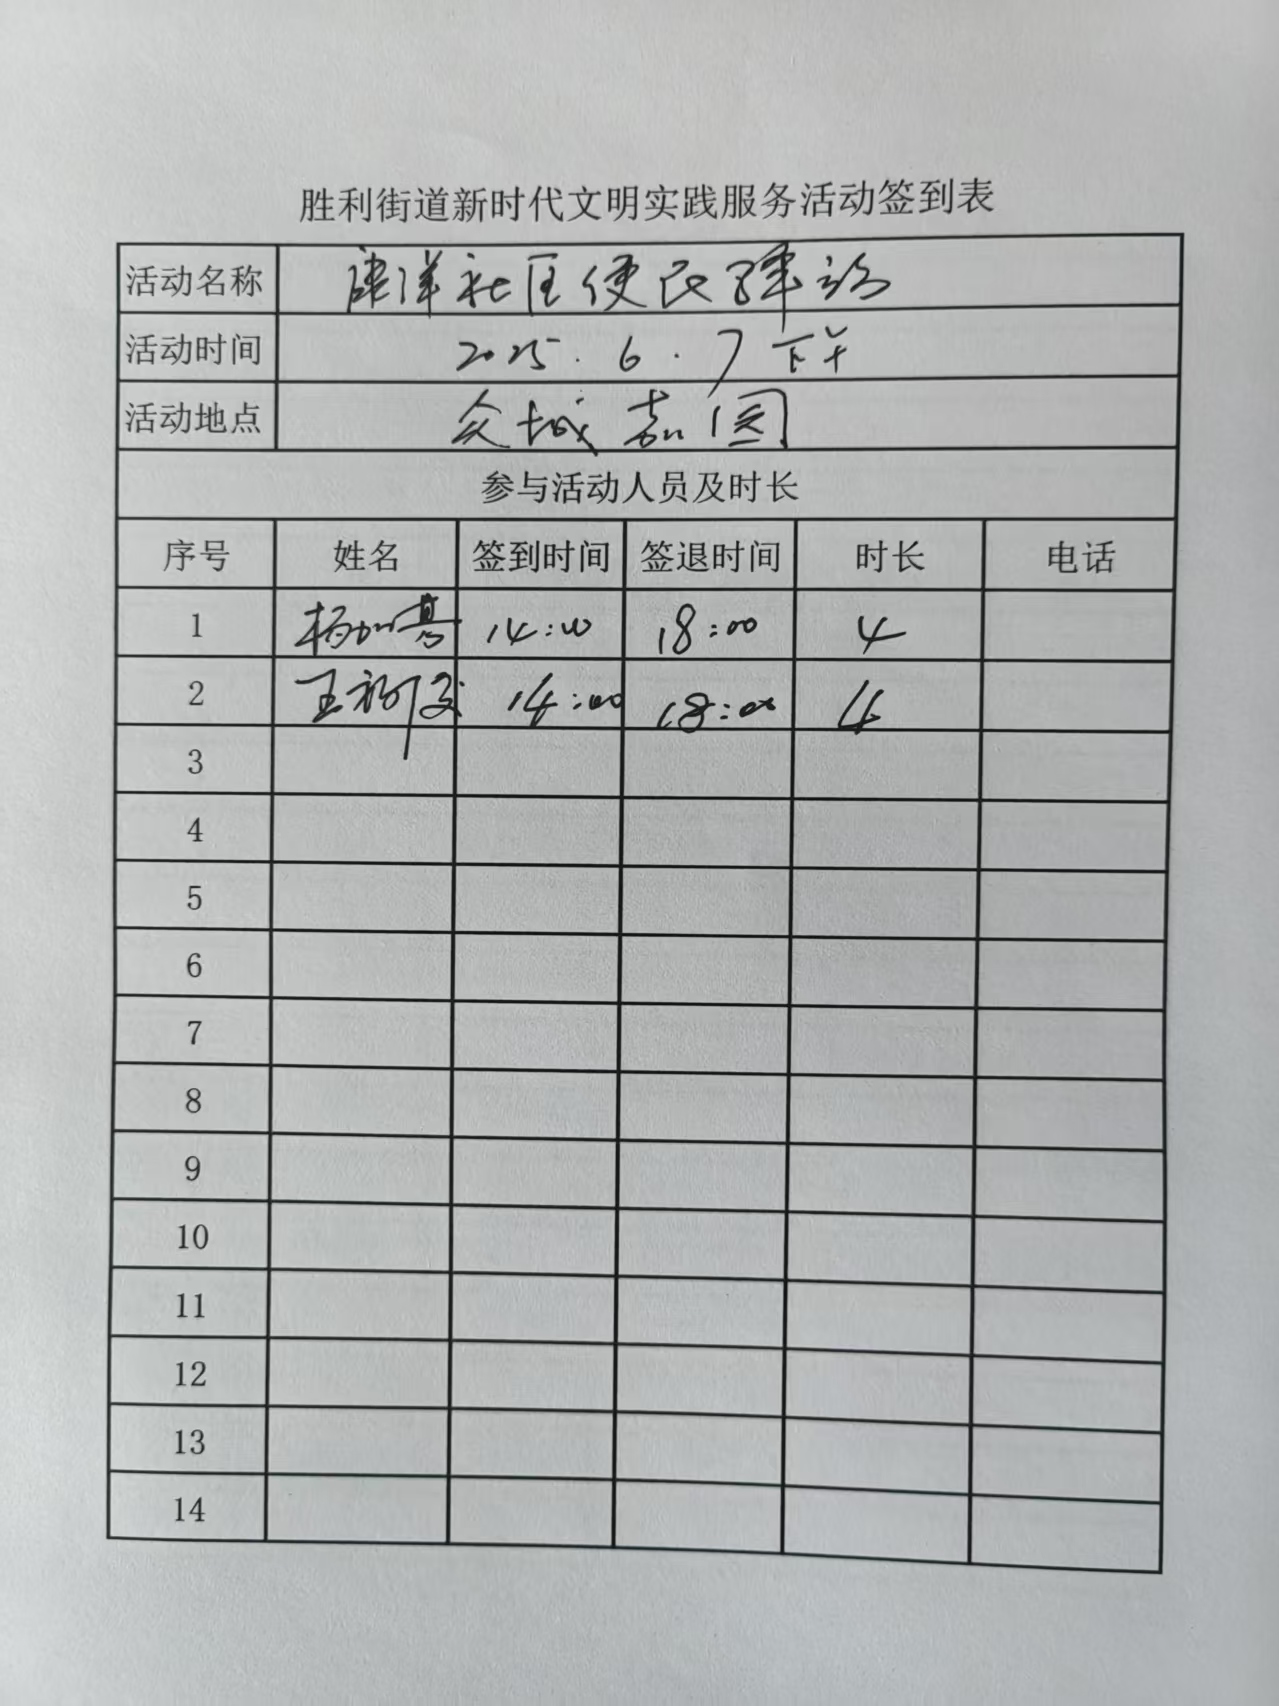 胜利街道新时代文明实践服务活动签到表
活动名称 康洋社区便民驿站
活动时间 2025.6.7下午
活动地点 众城嘉园
参与活动人员及时长
序号 姓名 签到时间 签退时间 时长 电话
1 杨加 14:00 18:00 4
2 王 14:00 18:00 4
3
4
5
6
7
8
9
10
11
12
13
14